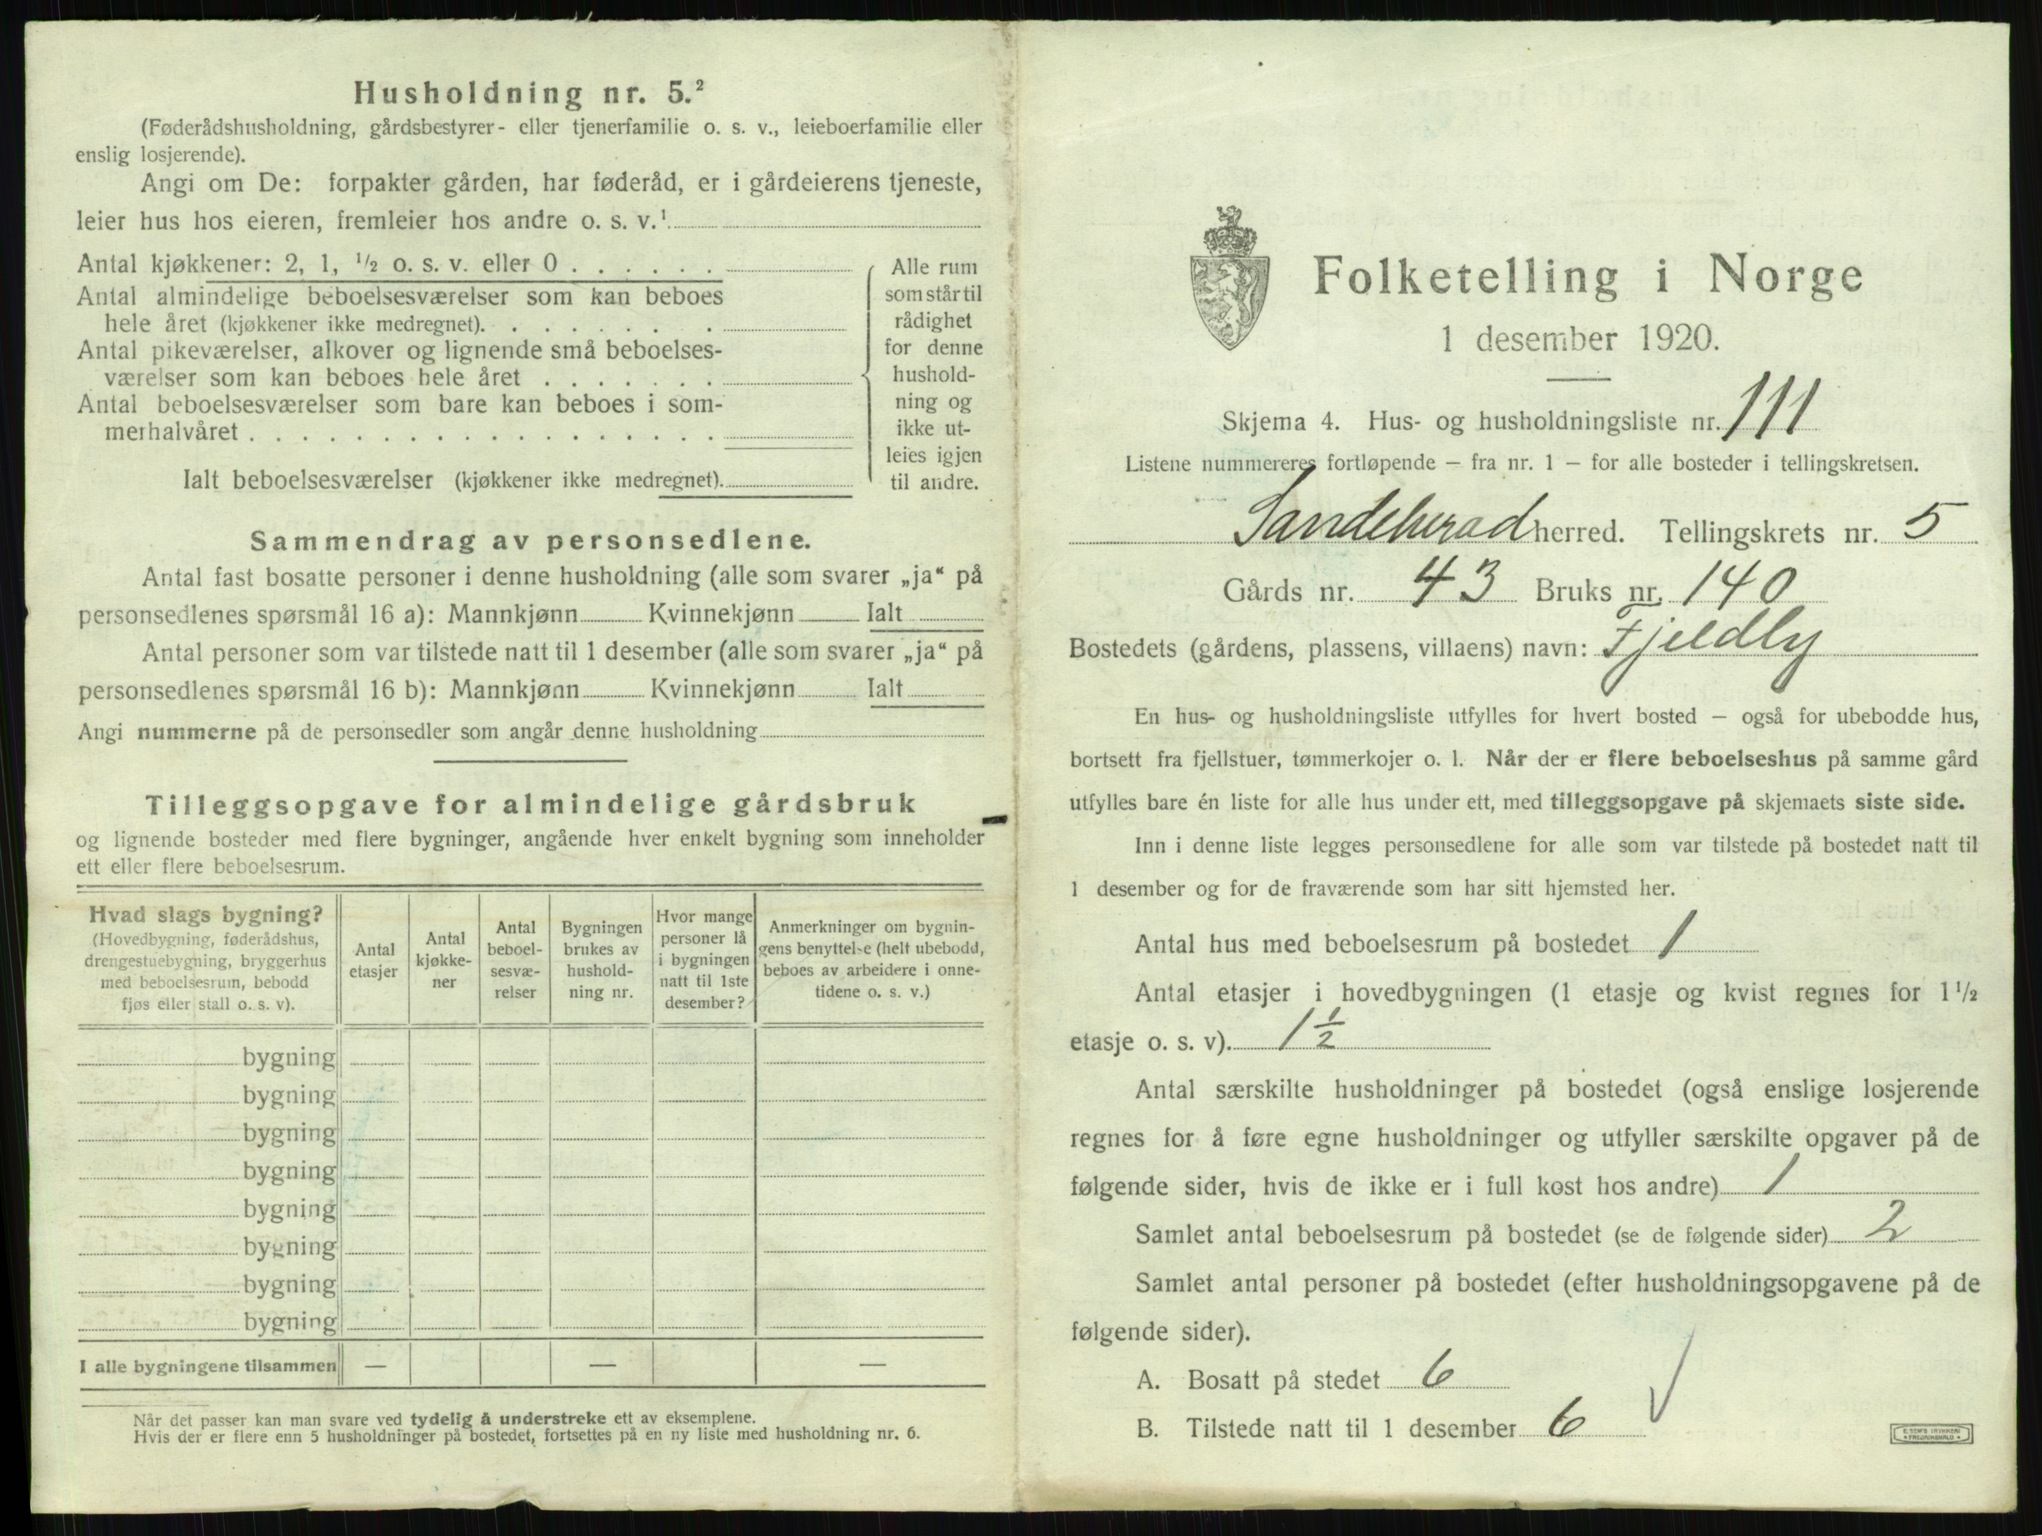 Husholdning nr. 5.²
(Føderådshusholdning, gårdsbestyrer- eller tjenerfamilie o. s. v., leieboerfamilie eller
enslig losjerende).
Angi om De: forpakter gården, har føderåd, er i gårdeierens tjeneste,
leier hus hos eieren, fremleier hos andre o. s. v.¹
Antal kjøkkener: 2, 1, ½ o. s. v. eller 0 . . . . . .
Antal almindelige beboelsesværelser som kan beboes
hele året (kjøkkener ikke medregnet). . . . . . . .
Antal pikeværelser, alkover og lignende små beboelses-
værelser som kan beboes hele året . . . . . . .
Antal beboelsesværelser som bare kan beboes i som-
merhalvåret . . . . . . . . . . . . . . . . . .
Ialt beboelsesværelser (kjøkkener ikke medregnet).
Alle rum
som står til
rådighet
for denne
hushold-
ning og
ikke ut-
leies igjen
til andre.
Sammendrag av personsedlene.
Antal fast bosatte personer i denne husholdning (alle som svarer „ja“ på
personsedlenes spørsmål 16 a): Mannkjønn Kvinnekjønn Ialt
Antal personer som var tilstede natt til 1 desember (alle som svarer „ja“ på
personsedlenes spørsmål 16 b): Mannkjønn Kvinnekjønn Ialt
Angi nummerne på de personsedler som angår denne husholdning
Tilleggsopgave for almindelige gårdsbruk
og lignende bosteder med flere bygninger, angående hver enkelt bygning som inneholder
ett eller flere beboelsesrum.
Hvad slags bygning?
(Hovedbygning, føderådshus,
drengestuebygning, bryggerhus
med beboelsesrum, bebodd
fjøs eller stall o. s. v).
Antal
etasjer
Antal
kjøkke-
ner
Antal
beboel-
sesvæ-
relser
Bygningen
brukes av
hushold-
ning nr.
Hvor mange
personer lå
i bygningen
natt til 1ste
desember?
Anmerkninger om bygnin-
gens benyttelse (helt ubebodd,
beboes av arbeidere i onne-
tidene o. s. v.)
bygning
bygning
bygning
bygning
bygning
bygning
bygning
bygning
I alle bygningene tilsammen — — —
Når det passer kan man svare ved tydelig å understreke ett av eksemplene.
Hvis der er flere enn 5 husholdninger på bostedet, fortsettes på en ny liste med husholdning nr. 6.
Folketelling i Norge
1 desember 1920.
Skjema 4. Hus- og husholdningsliste nr. 111
Listene nummereres fortløpende – fra nr. 1 – for alle bosteder i tellingskretsen.
Sandeherad herred. Tellingskrets nr. 5
Gårds nr. 43 Bruks nr. 140
Bostedets (gårdens, plassens, villaens) navn: Fjeldly
En hus- og husholdningsliste utfylles for hvert bosted – også for ubebodde hus,
bortsett fra fjellstuer, tømmerkojer o. l. Når der er flere beboelseshus på samme gård
utfylles bare én liste for alle hus under ett, med tilleggsopgave på skjemaets siste side.
Inn i denne liste legges personsedlene for alle som var tilstede på bostedet natt til
1 desember og for de fraværende som har sitt hjemsted her.
Antal hus med beboelsesrum på bostedet 1
Antal etasjer i hovedbygningen (1 etasje og kvist regnes for 1½
etasje o. s. v). 1½
Antal særskilte husholdninger på bostedet (også enslige losjerende
regnes for å føre egne husholdninger og utfyller særskilte opgaver på de
følgende sider, hvis de ikke er i full kost hos andre) 1
Samlet antal beboelsesrum på bostedet (se de følgende sider) 2
Samlet antal personer på bostedet (efter husholdningsopgavene på de
følgende sider).
A. Bosatt på stedet 6
B. Tilstede natt til 1 desember 6